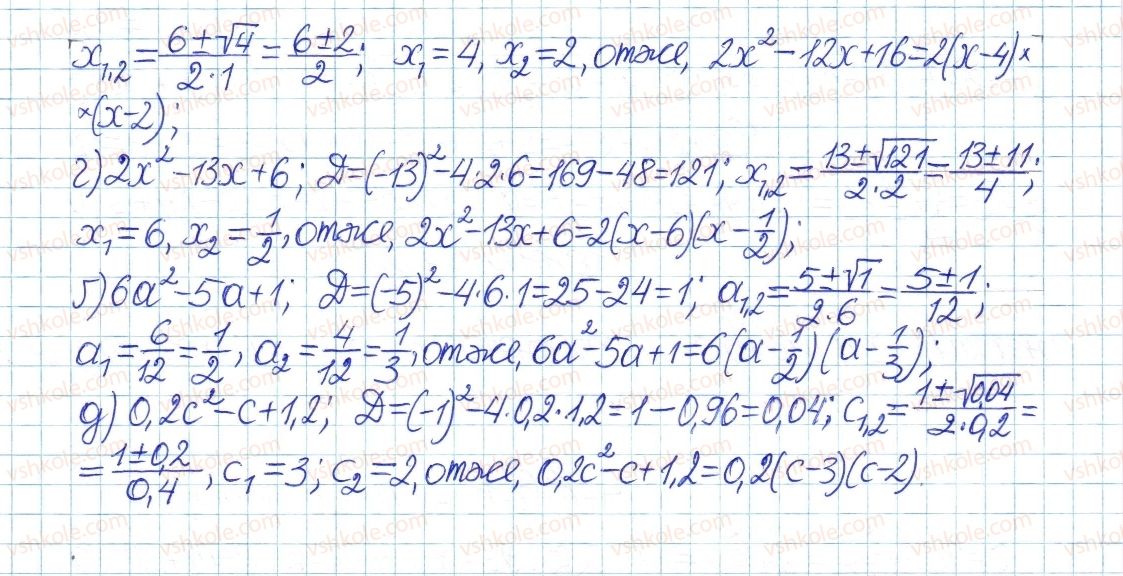 x₁,₂ = (6 ± √4)/(2·1) = (6 ± 2)/2; x₁ = 4, x₂ = 2, отже, 2x² − 12x + 16 = 2(x − 4)×
×(x − 2);
г) 2x² − 13x + 6; Д = (−13)² − 4·2·6 = 169 − 48 = 121; x₁,₂ = (13 ± √121)/(2·2) = (13 ± 11)/4;
x₁ = 6, x₂ = 1/2, отже, 2x² − 13x + 6 = 2(x − 6)(x − 1/2);
ґ) 6a² − 5a + 1; Д = (−5)² − 4·6·1 = 25 − 24 = 1; a₁,₂ = (5 ± √1)/(2·6) = (5 ± 1)/12;
a₁ = 6/12 = 1/2, a₂ = 4/12 = 1/3, отже, 6a² − 5a + 1 = 6(a − 1/2)(a − 1/3);
д) 0,2c² − c + 1,2; Д = (−1)² − 4·0,2·1,2 = 1 − 0,96 = 0,04; c₁,₂ = (1 ± √0,04)/(2·0,2) =
= (1 ± 0,2)/0,4, c₁ = 3; c₂ = 2, отже, 0,2c² − c + 1,2 = 0,2(c − 3)(c − 2).